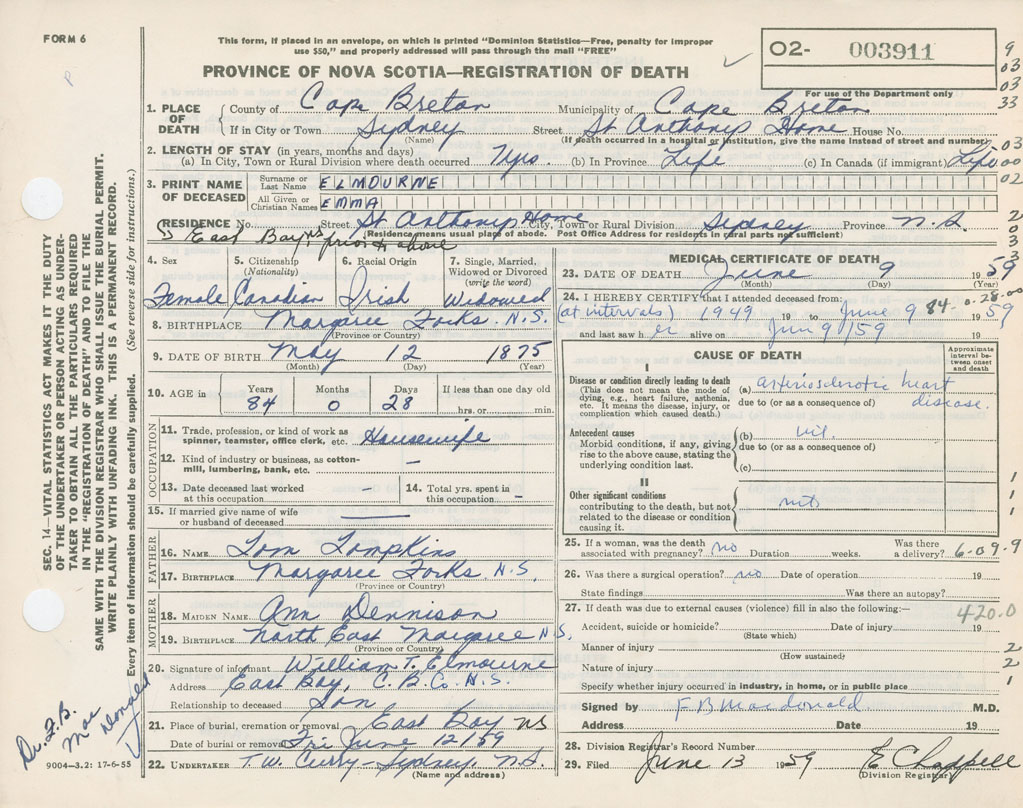 FORM 6
This form, if placed in an envelope, on which is printed "Dominion Statistics—Free, penalty for improper
use $50," and properly addressed will pass through the mail "FREE"
PROVINCE OF NOVA SCOTIA—REGISTRATION OF DEATH
O2- 003911
For use of the Department only
9
03
03
33
1. PLACE OF DEATH
County of Cape Breton Municipality of Cape Breton
If in City or Town Sydney Street St Anthony Home House No.
(Name) (If death occurred in a hospital or institution, give the name instead of street and number) 03
2. LENGTH OF STAY (in years, months and days)
(a) In City, Town or Rural Division where death occurred yrs. (b) In Province Life (c) In Canada (if immigrant) Life 00
3. PRINT NAME OF DECEASED
Surname or Last Name ELMOURNE 02
All Given or Christian Names EMMA
RESIDENCE No. Street St Anthony Home City, Town or Rural Division Sydney Province N.S.
(Residence means usual place of abode. Post Office Address for residents in rural parts not sufficient)
East Bay NS prior to above
2
0
3
3
4. Sex 5. Citizenship (Nationality) 6. Racial Origin 7. Single, Married, Widowed or Divorced (write the word)
Female Canadian Irish Widowed
8. BIRTHPLACE Margaree Forks. N.S.
(Province or Country)
9. DATE OF BIRTH May 12 1875
(Month) (Day) (Year)
10. AGE in Years Months Days If less than one day old
84 0 28 hrs. or min.
OCCUPATION
11. Trade, profession, or kind of work as spinner, teamster, office clerk, etc. Housewife
12. Kind of industry or business, as cotton-mill, lumbering, bank, etc. —
13. Date deceased last worked at this occupation —
14. Total yrs. spent in this occupation —
15. If married give name of wife or husband of deceased —
FATHER
16. NAME Tom Tompkins
17. BIRTHPLACE Margaree Forks. N.S.
(Province or Country)
MOTHER
18. MAIDEN NAME Ann Dennison
19. BIRTHPLACE North East Margaree N.S.
(Province or Country)
20. Signature of informant William T. Elmourne
Address East Bay, C.B.Co. N.S.
Relationship to deceased Son
21. Place of burial, cremation or removal East Bay NS
Date of burial or removal Fri June 12/59
22. UNDERTAKER T.W. Curry - Sydney N.S.
(Name and address)
MEDICAL CERTIFICATE OF DEATH
23. DATE OF DEATH June 9 1959
(Month) (Day) (Year)
24. I HEREBY CERTIFY that I attended deceased from: 84- 0.28.00
(at intervals) 1949 19 to June 9 1959
and last saw her alive on Jun 9/59
CAUSE OF DEATH
Approximate interval between onset and death
I
Disease or condition directly leading to death
(This does not mean the mode of dying, e.g., heart failure, asthenia, etc. It means the disease, injury, or complication which caused death.)
(a) arteriosclerotic heart disease.
due to (or as a consequence of)
Antecedent causes
Morbid conditions, if any, giving rise to the above cause, stating the underlying condition last.
(b) nil.
due to (or as a consequence of)
(c)
II
Other significant conditions
contributing to the death, but not related to the disease or condition causing it.
1
1
1
25. If a woman, was the death associated with pregnancy? no Duration weeks. Was there a delivery? 6.09.9
26. Was there a surgical operation? no Date of operation 19
State findings Was there an autopsy?
27. If death was due to external causes (violence) fill in also the following:— 420.0
Accident, suicide or homicide? Date of injury 19
(State which)
Manner of injury 2
(How sustained)
Nature of injury 2
Specify whether injury occurred in industry, in home, or in public place 1
Signed by F B Macdonald M.D.
Address Date 19
28. Division Registrar's Record Number
29. Filed June 13 1959 E Chappell
(Division Registrar)
SEC. 14—VITAL STATISTICS ACT MAKES IT THE DUTY
OF THE UNDERTAKER OR PERSON ACTING AS UNDER-
TAKER TO OBTAIN ALL THE PARTICULARS REQUIRED
IN THE "REGISTRATION OF DEATH" AND TO FILE THE
SAME WITH THE DIVISION REGISTRAR WHO SHALL ISSUE THE BURIAL PERMIT.
WRITE PLAINLY WITH UNFADING INK. THIS IS A PERMANENT RECORD.
Every item of information should be carefully supplied. (See reverse side for instructions.)
Dr. F.B.
Mac
Donald
9004—3.2: 17-6-55